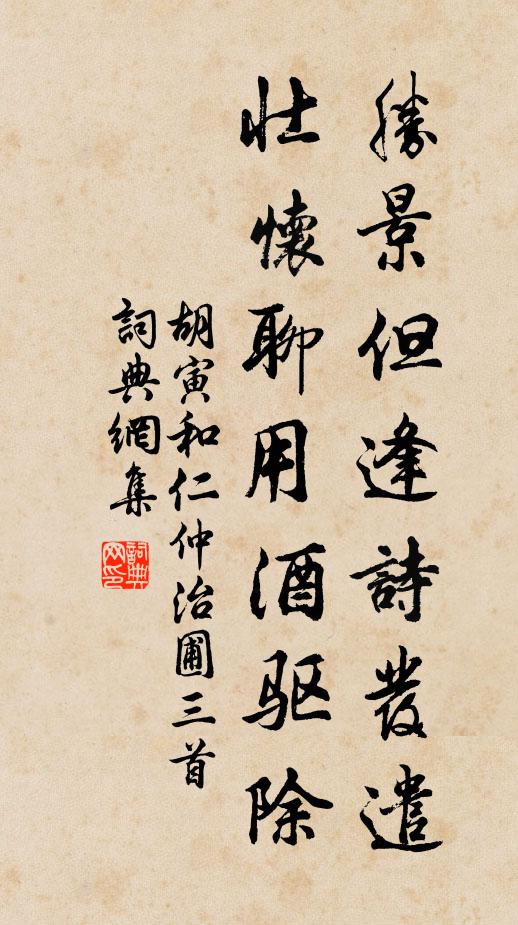 勝景但逢詩發遣
壯懷聊用酒驱除
胡寅和仁仲治圃三首
詞典網集
詞典网印